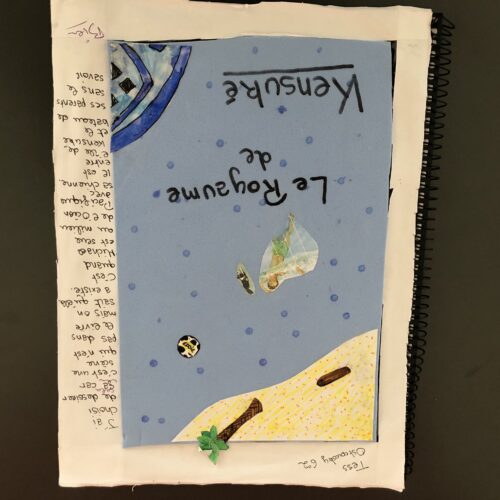 Tess
6e2
Le Royaume
de
Kensuké
J'ai
choisi
de dessiner
ça car
c'est une
scène
qui n'est
pas dans
le livre
mais on
sait qu'elle
a existé.
C'est
quand
Michael
est seul
au milieu
de l'Océan
Pacifique
avec
sa chienne.
Il est
entre
l'île de
Kensuke
et le
bateau de
ses parents
sans le
savoir
Bien